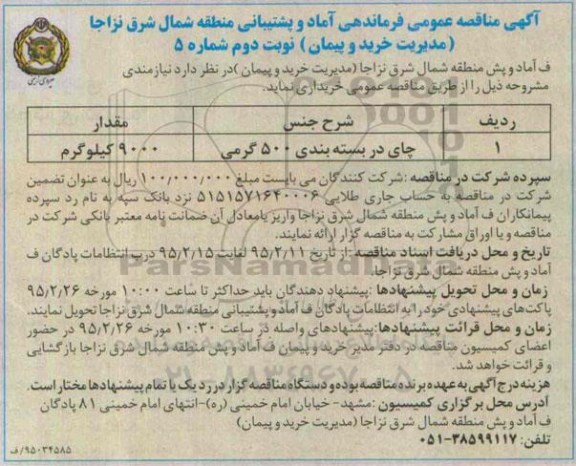 آگهی مناقصه عمومی فرماندهی آماد و پشتیبانی منطقه شمال شرق نزاجا
(مدیریت خرید و پیمان) نوبت دوم شماره ۵
ف آماد و پش منطقه شمال شرق نزاجا (مدیریت خرید و پیمان )در نظر دارد نیازمندی
مشروحه ذیل را از طریق مناقصه عمومی خریداری نماید.
ردیف شرح جنس مقدار
۱ چای در بسته بندی ۵۰۰ گرمی ۹۰۰۰ کیلوگرم
سپرده شرکت در مناقصه :شرکت کنندگان می بایست مبلغ ۱۰۰,۰۰۰,۰۰۰ ریال به عنوان تضمین
شرکت در مناقصه به حساب جاری طلایی ۵۱۵۱۵۷۱۶۴۰۰۰۶ نزد بانک سپه به نام رد سپرده
پیمانکاران ف آماد و پش منطقه شمال شرق نزاجا واریز یا معادل آن ضمانت نامه معتبر بانکی شرکت در
مناقصه و یا اوراق مشارکت به مناقصه گزار ارائه نمایند.
تاریخ و محل دریافت اسناد مناقصه :از تاریخ ۹۵/۲/۱۱ لغایت ۹۵/۲/۱۵ درب انتظامات پادگان ف
آماد و پش منطقه شمال شرق نزاجا.
زمان و محل تحویل پیشنهادها :پیشنهاد دهندگان باید حداکثر تا ساعت ۱۰:۰۰ مورخه ۹۵/۲/۲۶
پاکت‌های پیشنهادی خود را به انتظامات پادگان ف آماد و پشتیبانی منطقه شمال شرق نزاجا تحویل نمایند.
زمان و محل قرائت پیشنهادها:پیشنهادهای واصله در ساعت ۱۰:۳۰ مورخه ۹۵/۲/۲۶ در حضور
اعضای کمیسیون مناقصه در دفتر مدیر خرید و پیمان ف آماد و پش منطقه شمال شرق نزاجا بازگشایی
و قرائت خواهد شد.
هزینه درج آگهی به عهده برنده مناقصه بوده و دستگاه مناقصه گزار در رد یک یا تمام پیشنهادها مختار است.
آدرس محل برگزاری کمیسیون :مشهد- خیابان امام خمینی (ره)-انتهای امام خمینی ۸۱ پادگان
ف آماد و پش منطقه شمال شرق نزاجا (مدیریت خرید و پیمان)
تلفن: ۳۸۵۹۹۱۱۷-۰۵۱
۹۵۰۳۴۵۸۵/ف
ParsNamadData
۰۲۱-۸۸۳۴۹۶۷۰-۵